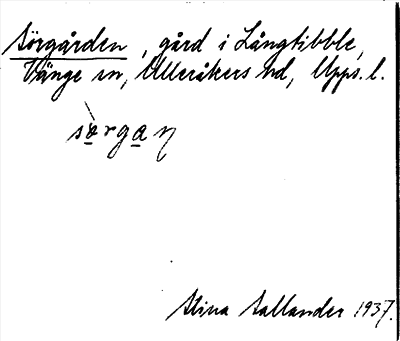 Sörgården, gård i Långtibble,
Vänge sn, Ulleråkers hd, Upps. l.
sǫ̀rgan
Stina Sallander 1937.